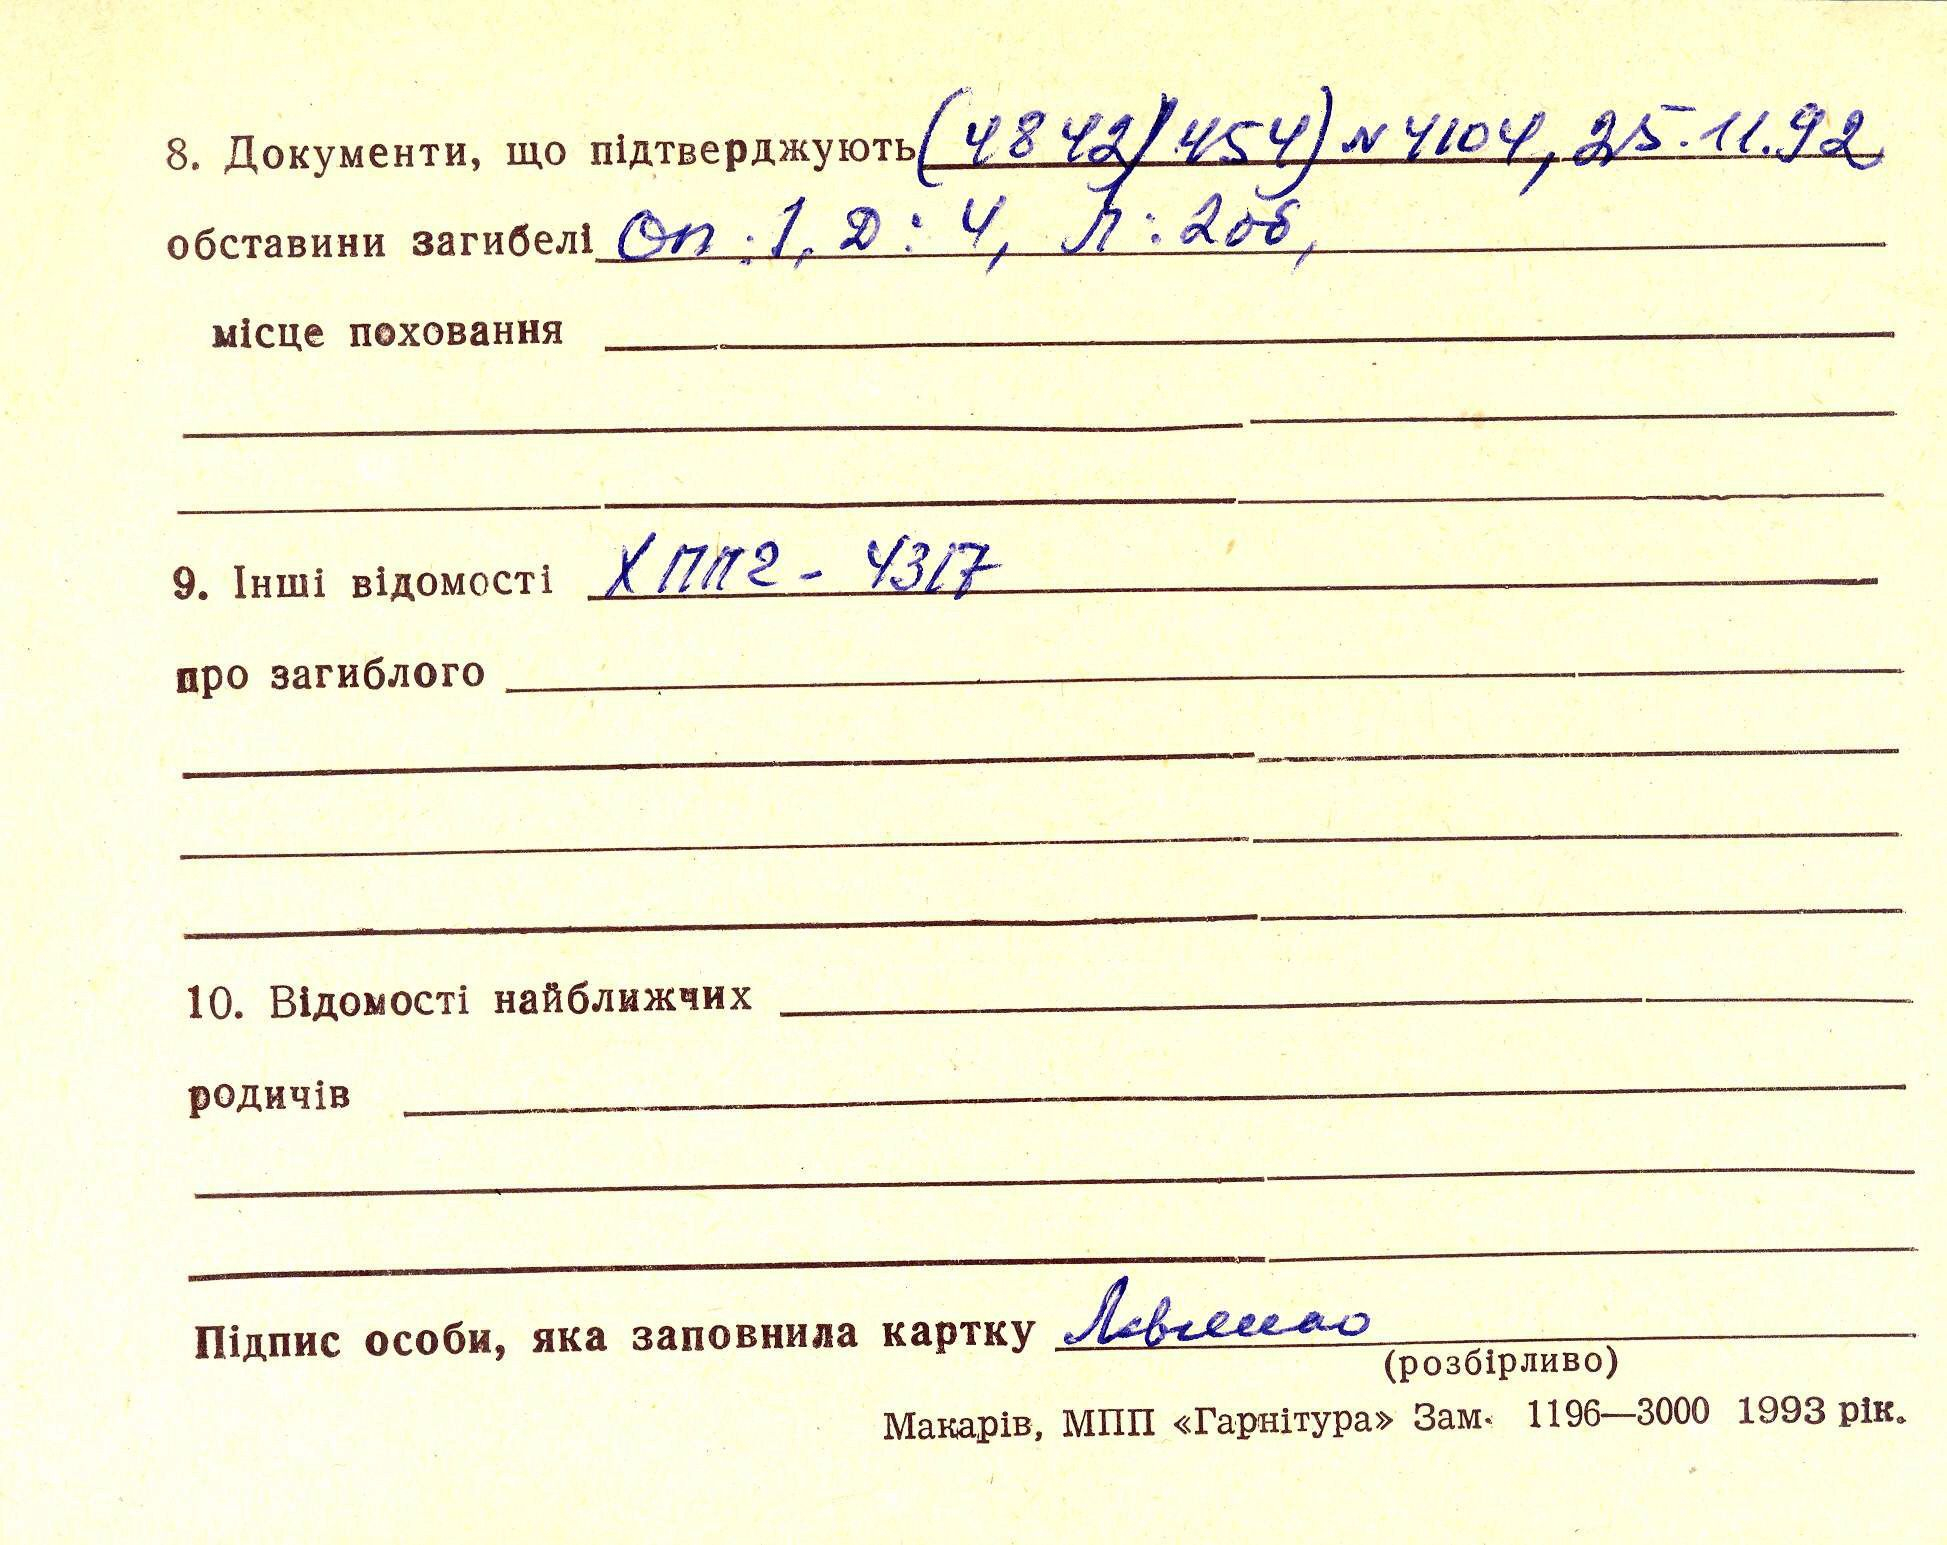 8. Документи, що підтверджують (4842)(454) № 4104, 25.11.92
обставини загибелі Оп: 1, Д: 4, Л: 2об,
місце поховання
9. Інші відомості ХППГ - 4317
про загиблого
10. Відомості найближчих
родичів
Підпис особи, яка заповнила картку
(розбірливо)
Макарів, МПП «Гарнітура» Зам. 1196—3000 1993 рік.